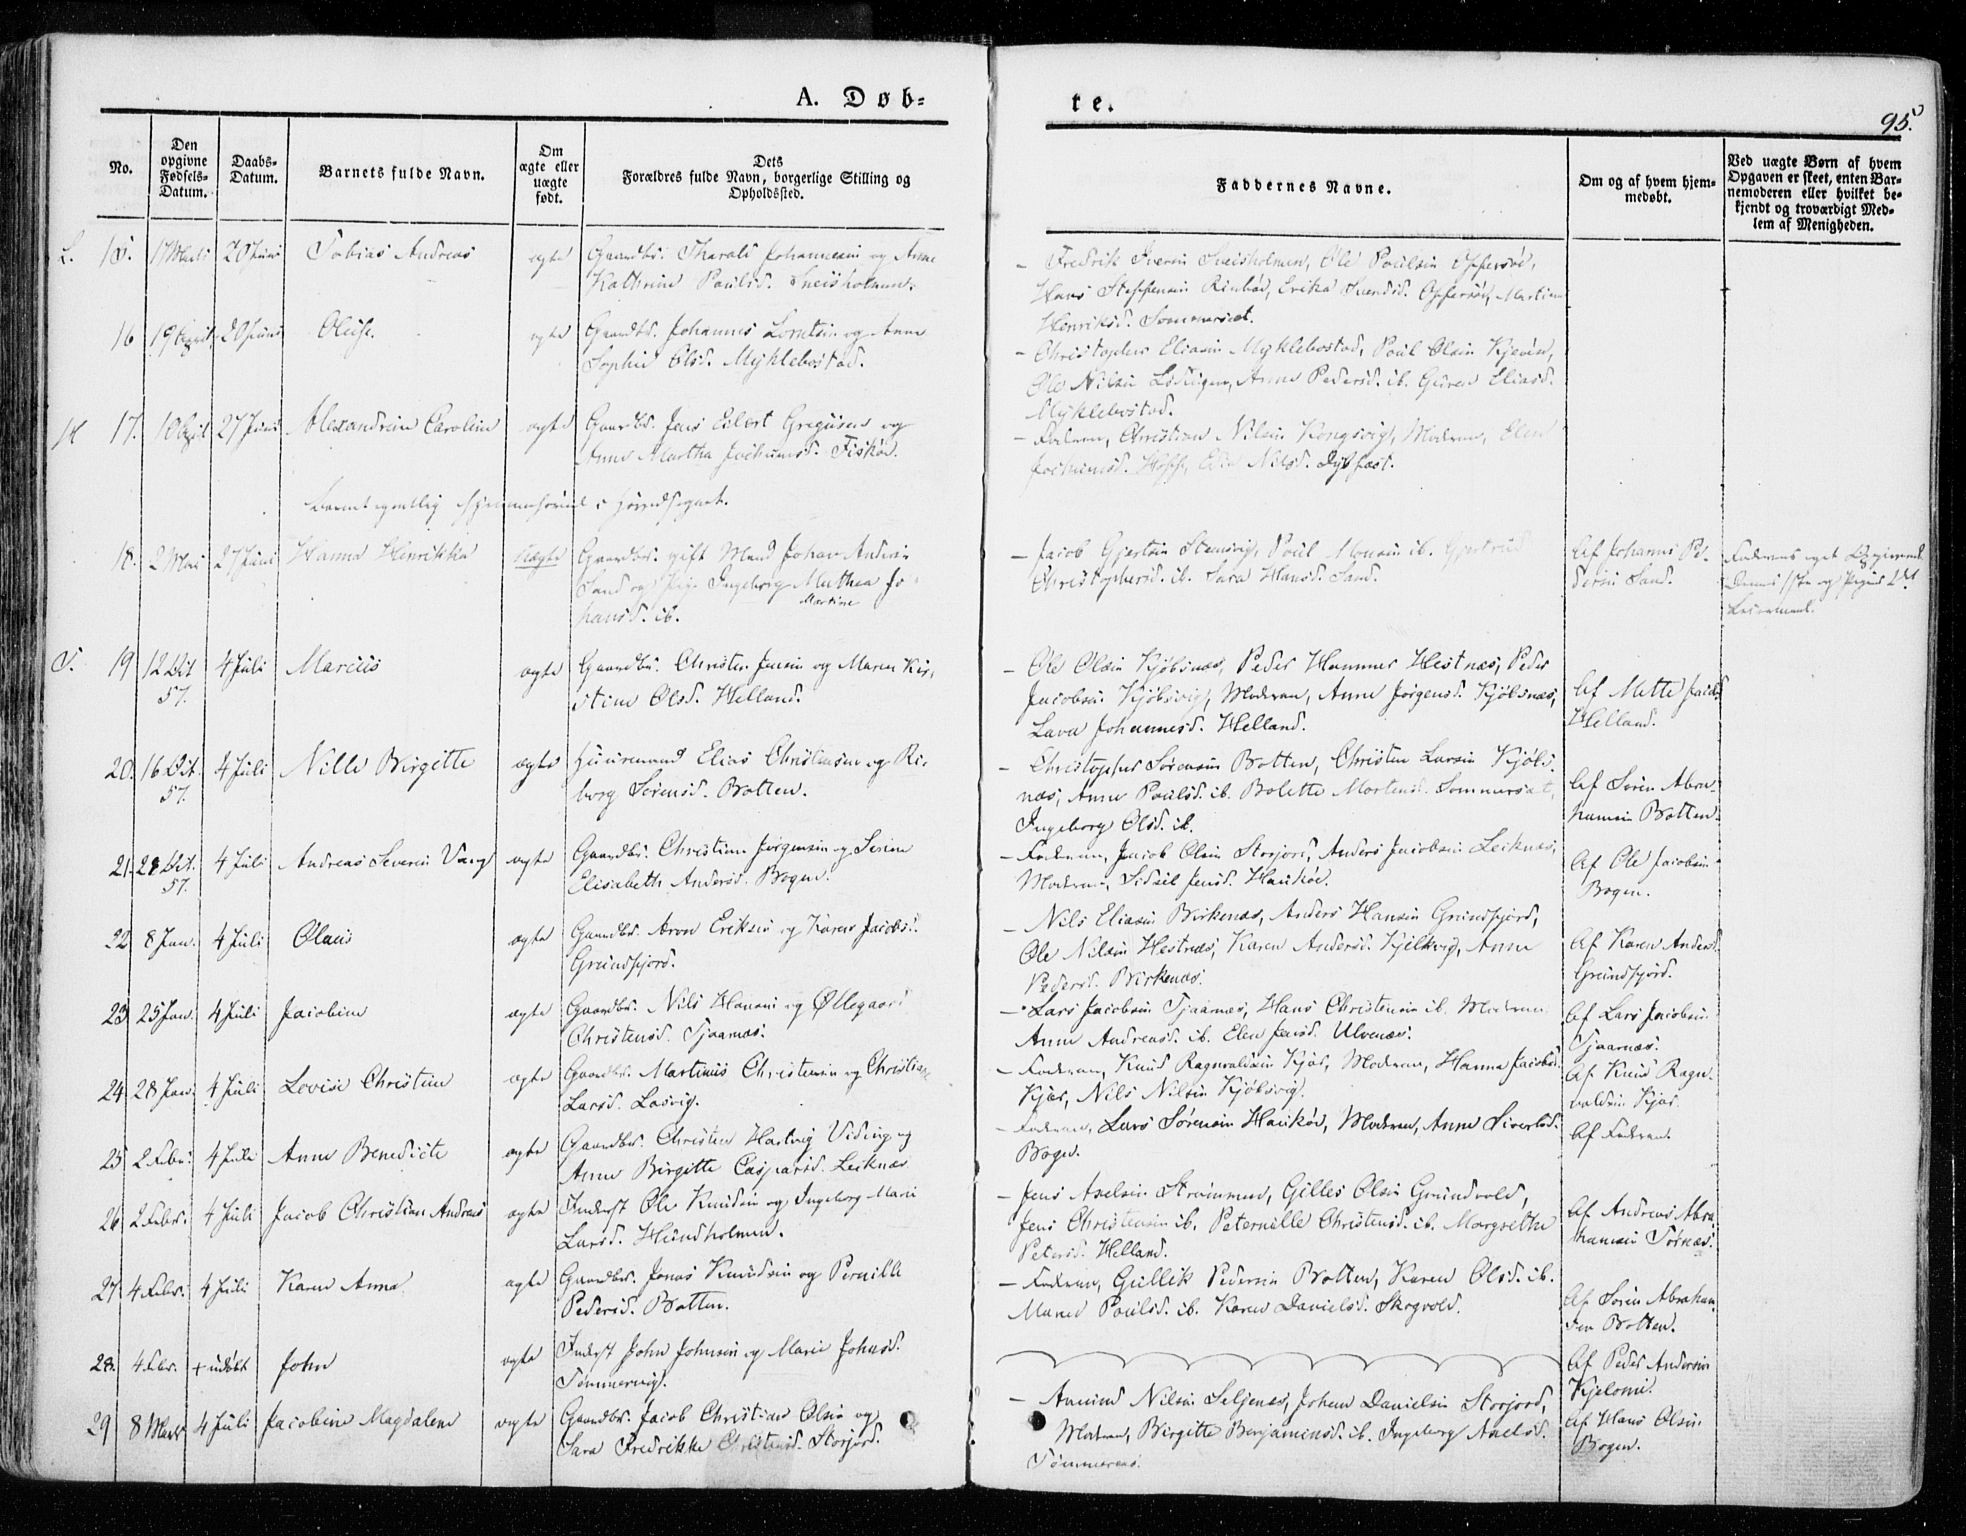 A. Døb=
te.
95.
No.
Den opgivne Fødsels-Datum.
Daabs-Datum.
Barnets fulde Navn.
Om ægte eller uægte født.
Dets Forældres fulde Navn, borgerlige Stilling og Opholdssted.
Faddernes Navne.
Om og af hvem hjemmedøbt.
Ved uægte Børn af hvem Opgaven er skeet, enten Barnemoderen eller hvilket bekjendt og troværdigt Medlem af Menigheden.
L. 15. 17 Marts 20 Juni Tobias Andreas ægte Gaardbr. Tharald Johannesen og Anne
Kathrine Paulsd. Sneisholmen.
– Fredrik Iversen Sneisholmen, Ole Paulsen Offersøe,
Hans Steffensen Rinbøe, Erika Svendsd. Offersøe, Martine
Henriksd. Sommerset.
16 19 April 20 Juni Oluf. ægte Gaardbr. Johannes Lorntsen og Anne
Sophie Olsd. Myklebostad.
– Christopher Eliasen Myklebostad, Poul Olsen Kjeøen,
Ole Nilsen Lødingen, Anne Pedersd. ib. Guren Eliasd.
Myklebostad.
H 17. 10 April 27 Juni Alexandrine Caroline ægte Gaardbr. Jens Eilert Gregusen og
Anne Martha Jochumsd. Fiskøe.
– Faderen, Christian Nilsen Kongsvig, Moderen, Elen
Jochumsd. Hoff, Nilsd. Dybfæst.
Barnet egentlig hjemmehørende i
18. 2 Mai 27 Juni Hanna Henrikka uægte Gaardbr. gift Mand Johan Anders.
Sand og Pige Ingeborg Mathea Jo-
Martine
hansd. ib.
– Jacob Gjertsen Stensvig, Poul Monsen ib. Gjertrud
Christophersd. ib. Sara Hansd. Sand.
Af Johannes Pe-
dersen Sand.
Faderens eget Opgivende.
Dennes 1ste og Pigens 2det
Leiermaal.
T. 19 12 Oct 57. 4 Juli Marcus ægte Gaardbr. Christen Jensen og Maren Kir-
stine Olsd. Helland.
– Ole Olsen Kjøbsnæs, Peder Hammer Hestnæs, Peder
Jacobsen Kjøbsvig, Moderen, Anne Jørgensd. Kjøbsnæs,
Lava Johannesd. Helland.
Af Mette Jacobsd
Helland.
20. 16 Oct. 57. 4 Juli Nille Birgitte ægte Huusmand Elias Christensen og Ri-
borg Sørensd. Botten.
– Christopher Sørensen Botten, Christen Larsen Kjøbs-
næs, Anne Paulsd. ib. Bolette Mortensd. Sommerset,
Ingeborg Olsd. ib.
Af Søren Abra-
hamsen Botten.
21. 28 Oct. 57. 4 Juli Andreas Severin Vang ægte Gaardbr. Christian Jørgensen og Serine
Elisabeth Andersd. Bogen.
– Faderen, Jacob Olsen Storjord, Anders Jacobsen Leiknæs,
Moderen, Sidsel Jensd. Haukøe.
Af Ole Jacobsen
Bogen.
22 8 Jan. 4 Juli Olaus ægte Gaardbr. Aron Eriksen og Karen Jacobsd.
Grundfjord.
– Nils Eliasen Birkenæs, Anders Hansen Grundfjord,
Ole Nilsen Hestnæs, Karen Andersd. Kjelkvig, Anne
Pedersd. Birkenæs.
Af Karen Andersd.
Grundfjord.
23 25 Jan. 4 Juli Jacobine ægte Gaardbr. Nils Hansen og Øllegaard
Christensd. Tjaarnæs.
– Lars Jacobsen Tjaarnæs, Hans Christensen ib. Moderen
Anne Andreasd. ib. Elen Jensd. Ulvenæs.
Af Lars Jacobsen
Tjaarnæs.
24 28 Jan. 4 Juli Lovise Christine ægte Gaardbr. Martinus Christensen og Christiane
Larsd. Losvig.
– Faderen, Knud Ragnvaldsen Kjær, Moderen, Hanna Jacobsd.
Kjær, Nils Nilsen Kjøbsvig.
Af Knud Ragn-
valdsen Kjær.
25 2 Febr. 4 Juli Anne Benedicte ægte Gaardbr. Christen Hartvig Viding og
Anne Birgitte Caspersd. Leiknæs
– Faderen, Lars Sørensen Haukøe, Moderen, Anne Sivertsd.
Bogen.
Af Faderen.
26 2 Febr. 4 Juli Jacob Christian Andreas ægte Inderst Ole Knudsen og Ingeborg Marie
Larsd. Hundholmen.
– Jens Axelsen Strømmen, Gilles Olsen Grundvold,
Jens Christensen ib. Peternille Christensd. ib. Margrethe
Petersd. Helland.
Af Andreas Abra-
hamsen Tørnæs.
27. 4 Febr. 4 Juli Karen Anna ægte Gaardbr. Jonas Knudsen og Pernille
Pedersd. Botten.
– Faderen, Gullik Pedersen Botten, Karen Olsd. ib.
Maren Paulsd. ib. Karen Danielsd. Skogvold.
Af Søren Abraham-
sen Botten.
28. 4 Febr. + udøbt John ægte Inderst John Johnsen og Marie Johnsd.
Tømmervig.
Af Peder Andersen
Kjelomi.
29 8 Marts 4 Juli Jacobine Magdalene ægte Gaardbr. Jacob Christian Olsen og
Sara Fredrikke Christensd. Storjord.
– Amund Nilsen Seljenæs, Johan Danielsen Storjord,
Moderen, Birgitte Benjaminsd. ib. Ingeborg Axelsd.
Tømmernæs.
Af Hans Olsen
Bogen.